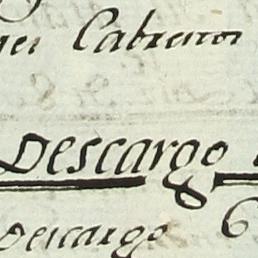 Cabreros
Descargo
Descargo 6